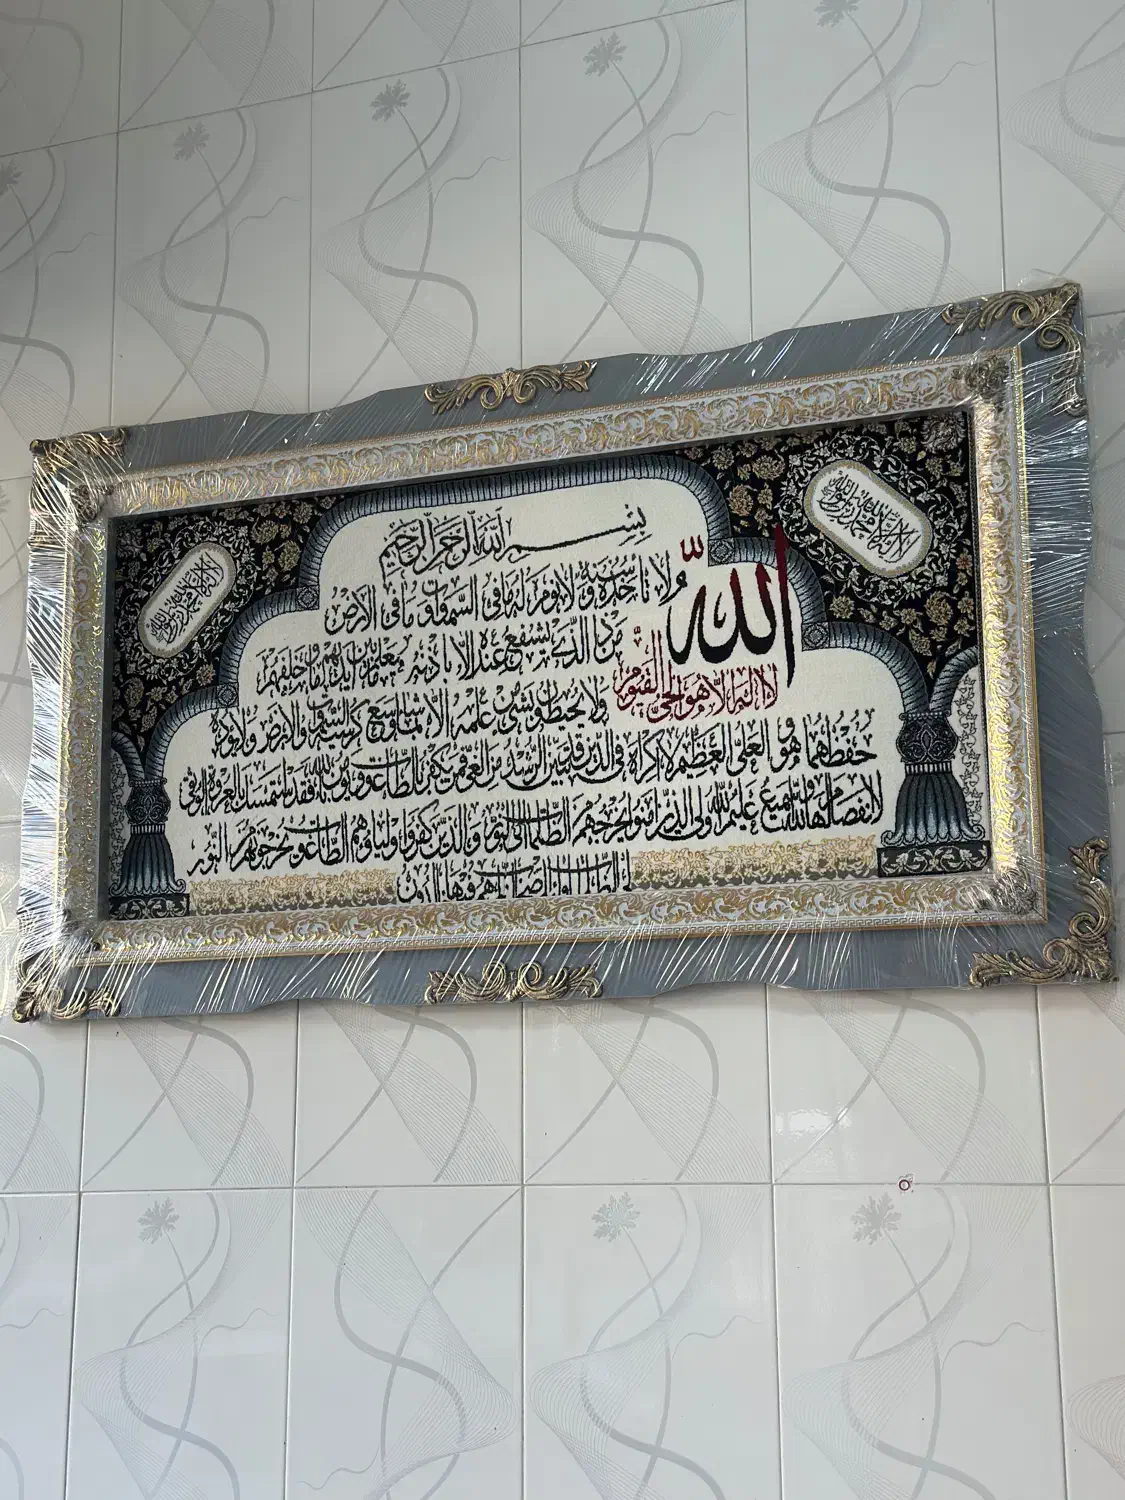 بسم الله الرحمن الرحيم
الله
لا اله الا هو الحي القيوم
ولا تاخذه سنة ولا نوم له ما في السموات وما في الارض
من ذا الذي يشفع عنده الا باذنه يعلم ما بين ايديهم وما خلفهم
ولا يحيطون بشئ من علمه الا بما شاء وسع كرسيه السموات والارض ولا يؤده
حفظهما وهو العلي العظيم لا اكراه في الدين قد تبين الرشد من الغي فمن يكفر بالطاغوت ويؤمن بالله فقد استمسك بالعروة الوثقى
لا انفصام لها والله سميع عليم الله ولي الذين امنوا يخرجهم من الظلمات الى النور والذين كفروا اولياؤهم الطاغوت يخرجونهم من النور
الى الظلمات اولئك اصحاب النار هم فيها خالدون
لا اله الا الله محمد رسول الله
لا اله الا الله محمد رسول الله